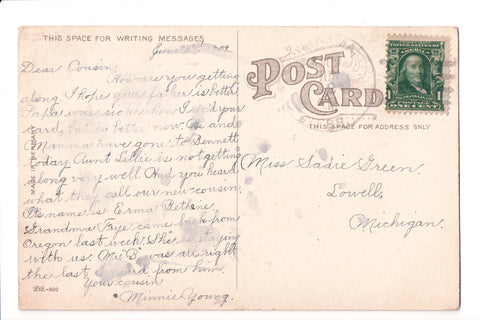 THIS SPACE FOR WRITING MESSAGES
June 1909.
Dear Cousin;
How are you getting
along I hope your father is betta
Papa was sick when I rec'd your
card, but is better now. He and
Mamma have gone to Bennett
today. Aunt Lettie is not getting
along very well. Had you heard
what they call our new cousin.
Its name is Erma Bethene.
Grandma Faye came back from
Oregon last week. She is staying
with us. Mr. B. was all right
the last I heard from him.
Your cousin
Minnie Young.
MADE IN GERMANY
POST CARD
THIS SPACE FOR ADDRESS ONLY
Miss Sadie Green,
Lowell,
Michigan.